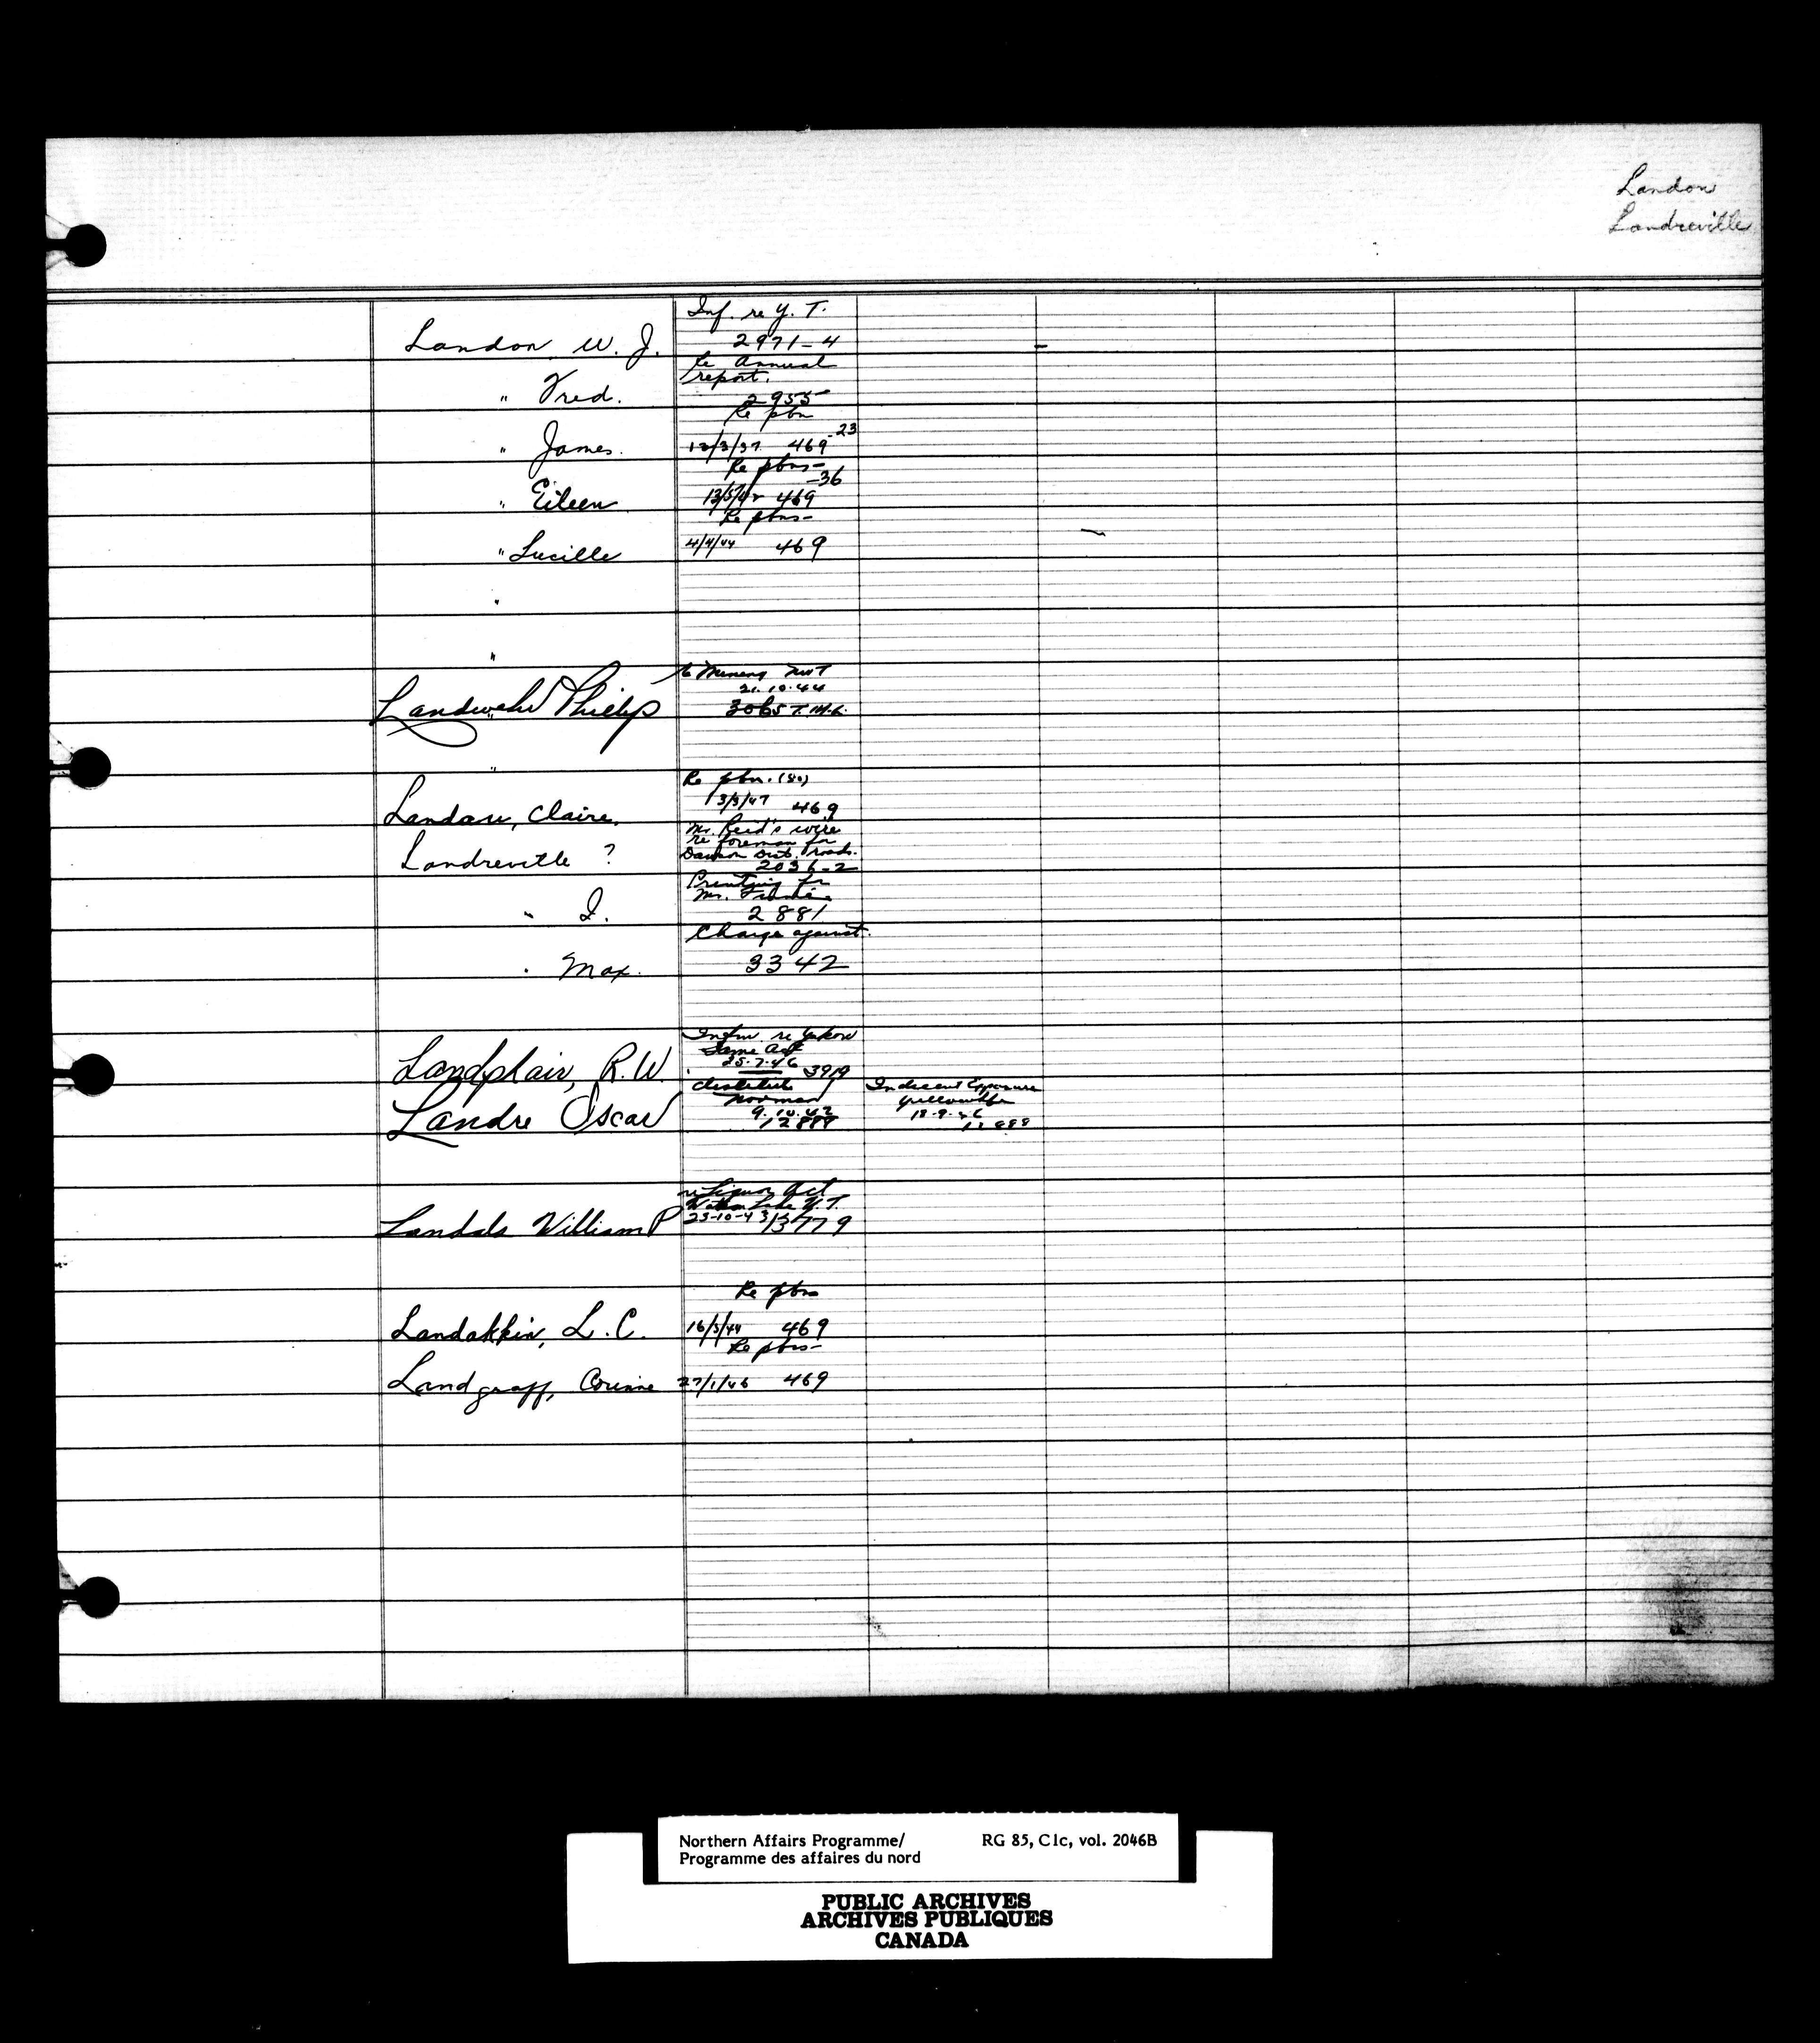 Landon
Landreville
Inf. re Y. T.
Landon W. J. 2971-4
Re Annual
report.
" Fred. 2955
Re pbn
" James. 13/3/37 469-23
Re pbns -36
" Eileen 13/5/42 469
Re pbns-
" Lucille 4/4/44 469
"
"
Mining NWT
21.10.44
Landwehr Phillip 3065
"
Re pbn. (80)
13/3/47 469
Landau, Claire.
Mr. Reid's wire
re foreman for
Dawson Dist. roads.
Landreville ? 2036-2
Printing for
Mr.
" I. 2881
Charge against.
" Max. 3342
Infm re Yukon
Game Act
25-7-46 3919
Landplair, R.W.
Norman
9.10.42
12889
Indecent Exposure
Yellowknife
18-9-46
12889
Landre Oscar
re Liquor Act
Watson Lake Y.T.
25-10-43 13779
Landals William P
Re pbns
Landakkin, L.C. 16/3/44 469
Re pbns-
Landgraff, Corinne 27/1/46 469
Northern Affairs Programme/ RG 85, C1c, vol. 2046B
Programme des affaires du nord
PUBLIC ARCHIVES
ARCHIVES PUBLIQUES
CANADA